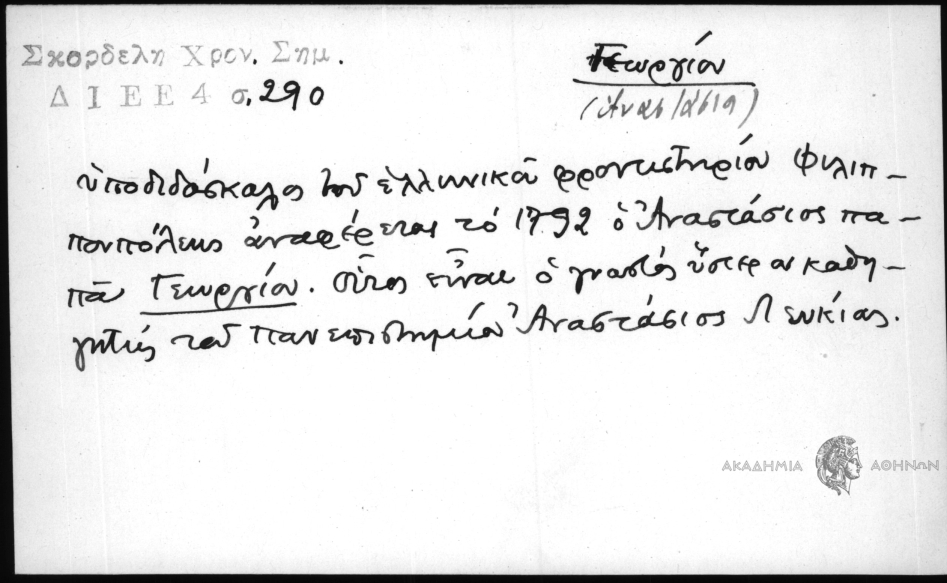 Σκορδελη Χρον. Σημ.
ΔΙΕΕ 4 σ. 290
Γεωργίου
(Ἀναστάσιο)
ὑποδιδάσκαλος τοῦ ἑλληνικοῦ φροντιστηρίου Φιλιπ-
πουπόλεως ἀναφέρεται τὸ 1792 ὁ Ἀναστάσιος πα-
πᾶ Γεωργίου. Οὗτος εἶναι ὁ γνωστὸς ὕστερον καθη-
γητὴς τοῦ Πανεπιστημίου Ἀναστάσιος Λευκίας.
ΑΚΑΔΗΜΙΑ ΑΘΗΝΩΝ